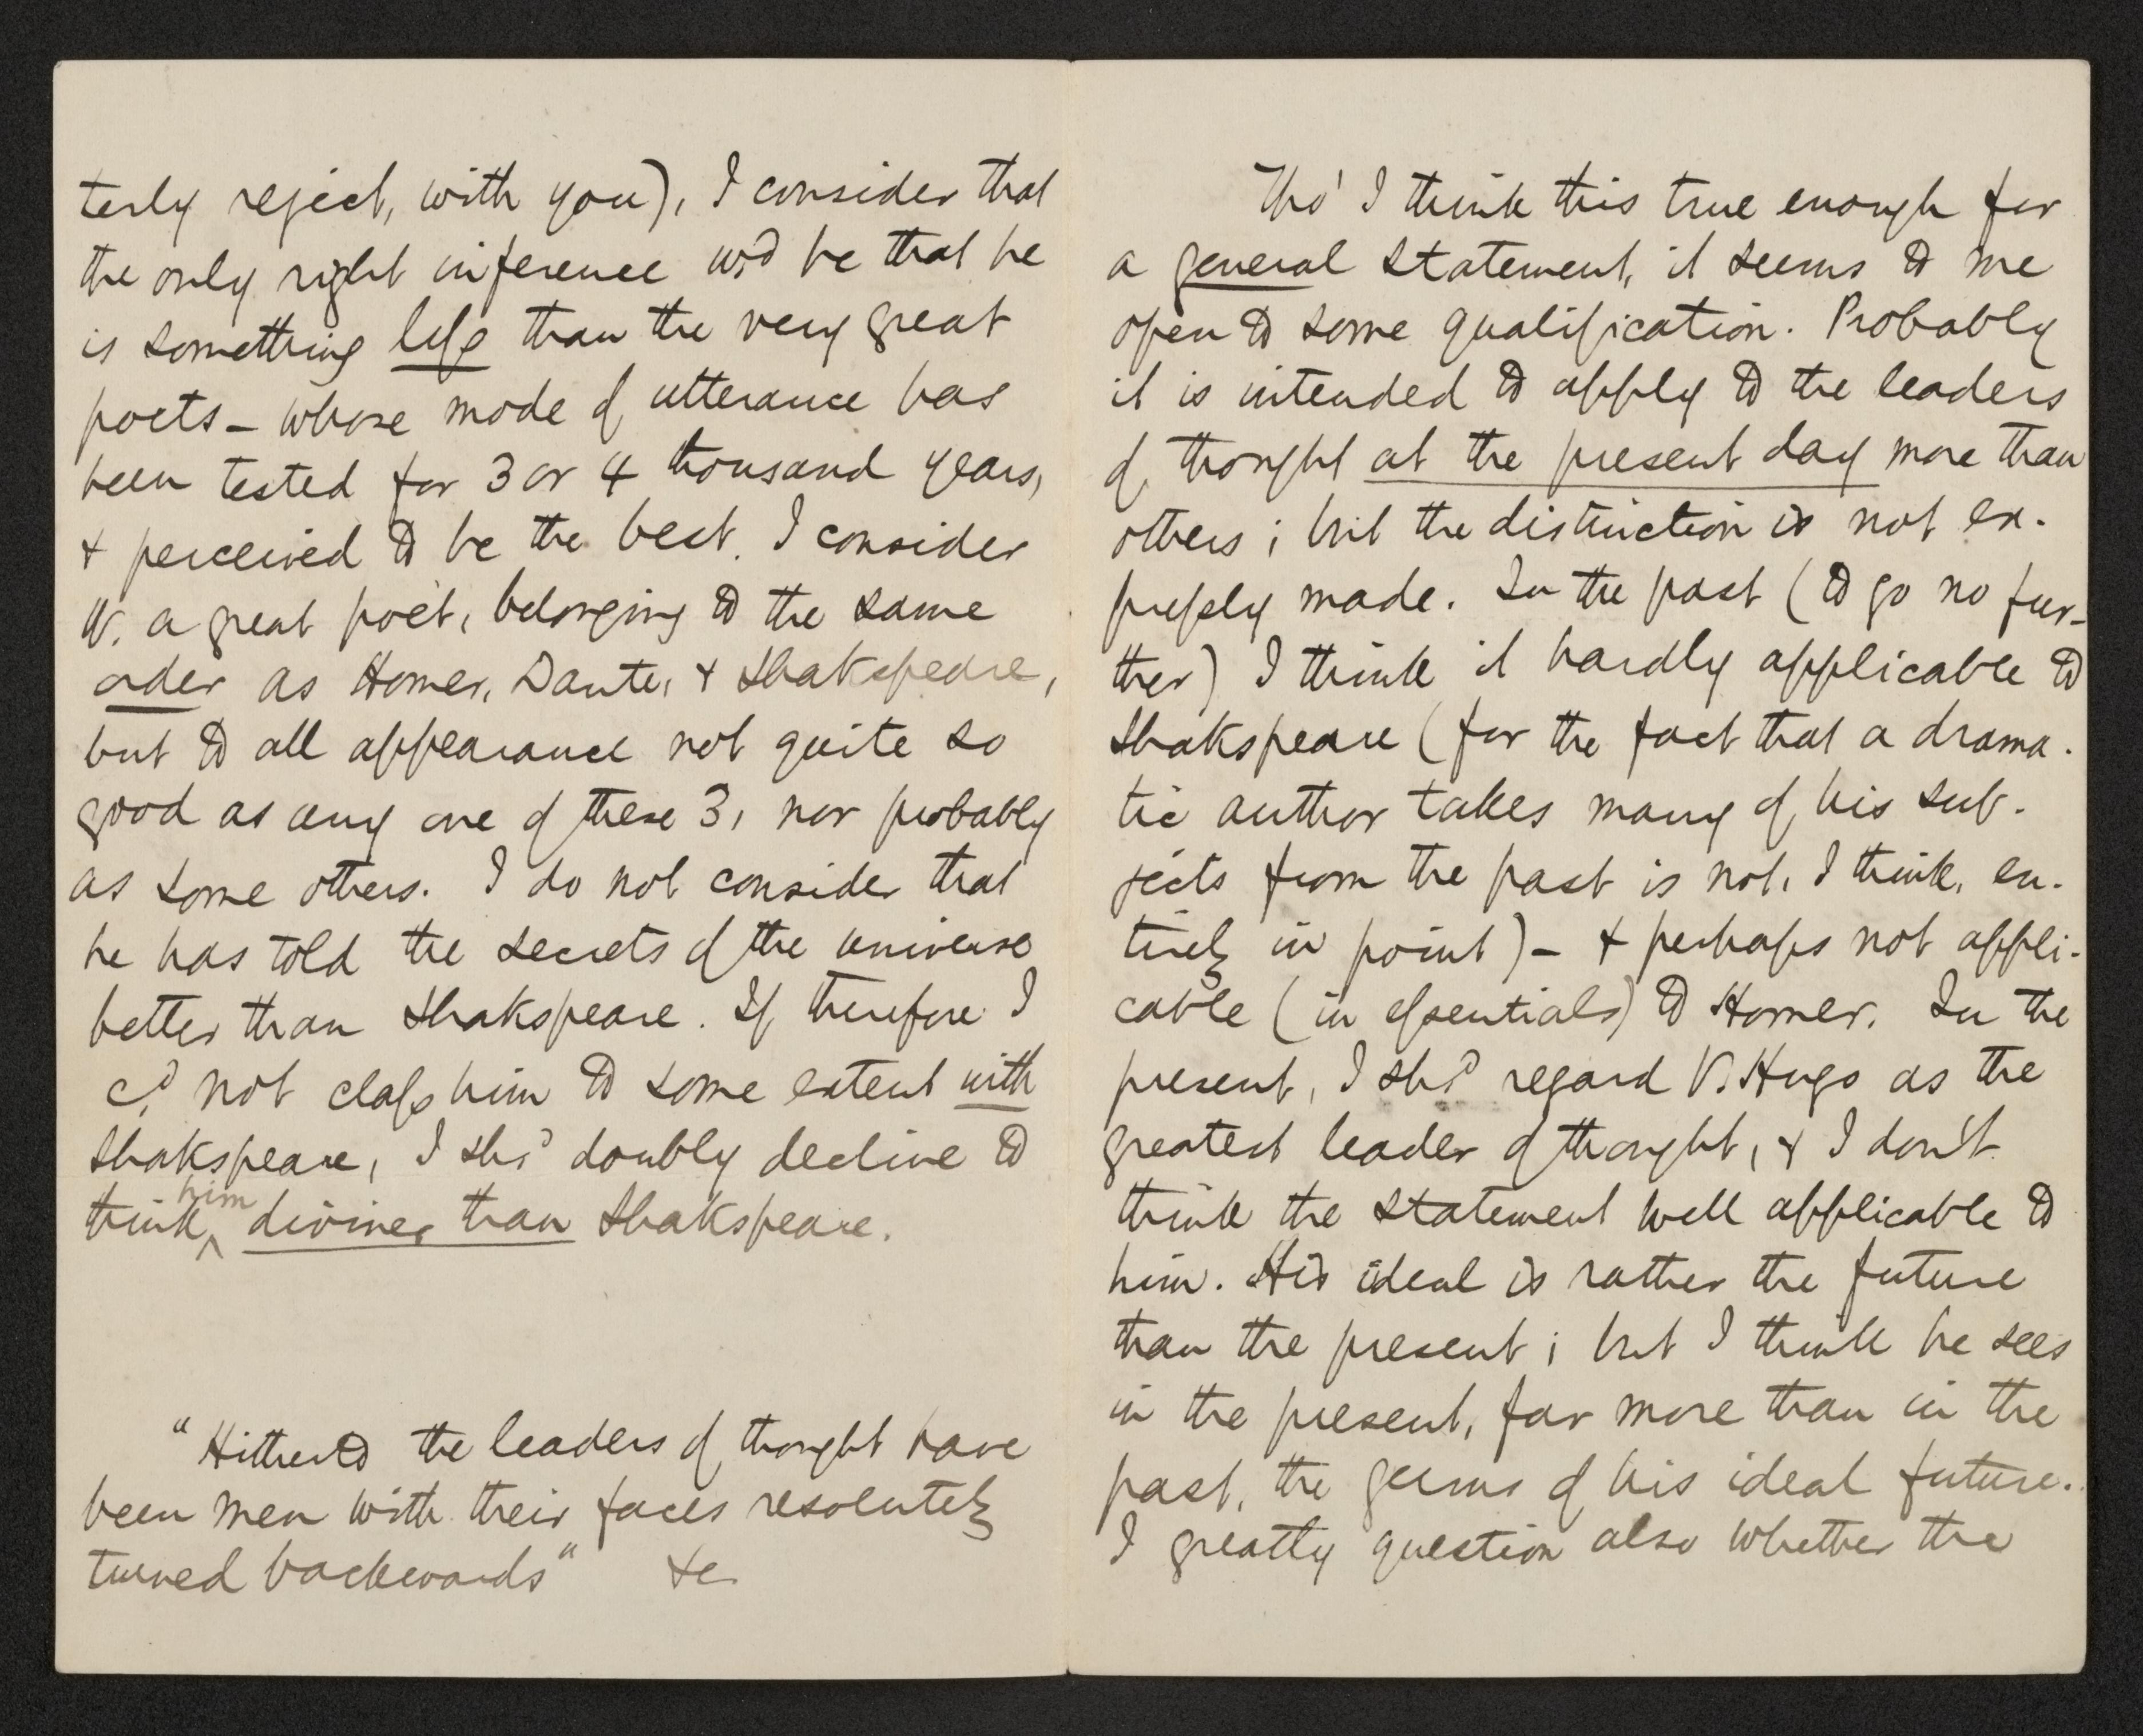 terly reject, with you), I consider that
the only right inference wd be that he
is something less than the very great
poets — whose mode of utterance has
been tested for 3 or 4 thousand years,
& perceived to be the best. I consider
W. a great poet, belonging to the same
order as Homer, Dante, & Shakspeare,
but to all appearance not quite so
good as any one of these 3, nor probably
as some others. I do not consider that
he has told the secrets of the universe
better than Shakspeare. If therefore I
cd. not class him to some extent with
Shakspeare, I shd doubly decline to
think him diviner than Shakspeare.
"Hitherto the leaders of thought have
been men with their faces resolutely
turned backwards" &c
Tho' I think this true enough for
a general statement, it seems to me
open to some qualification. Probably
it is intended to apply to the leaders
of thought at the present day more than
others; but the distinction is not ex-
pressly made. In the past (to go no fur-
ther) I think it hardly applicable to
Shakspeare (for the fact that a drama-
tic author takes many of his sub-
jects from the past is not, I think, en-
tirely in point) — & perhaps not appli-
cable (in essentials) to Homer. In the
present, I shd regard V. Hugo as the
greatest leader of thought, & I don't
think the statement well applicable to
him. His ideal is rather the future
than the present; but I think he sees
in the present, far more than in the
past, the germs of his ideal future.
I greatly question also whether the